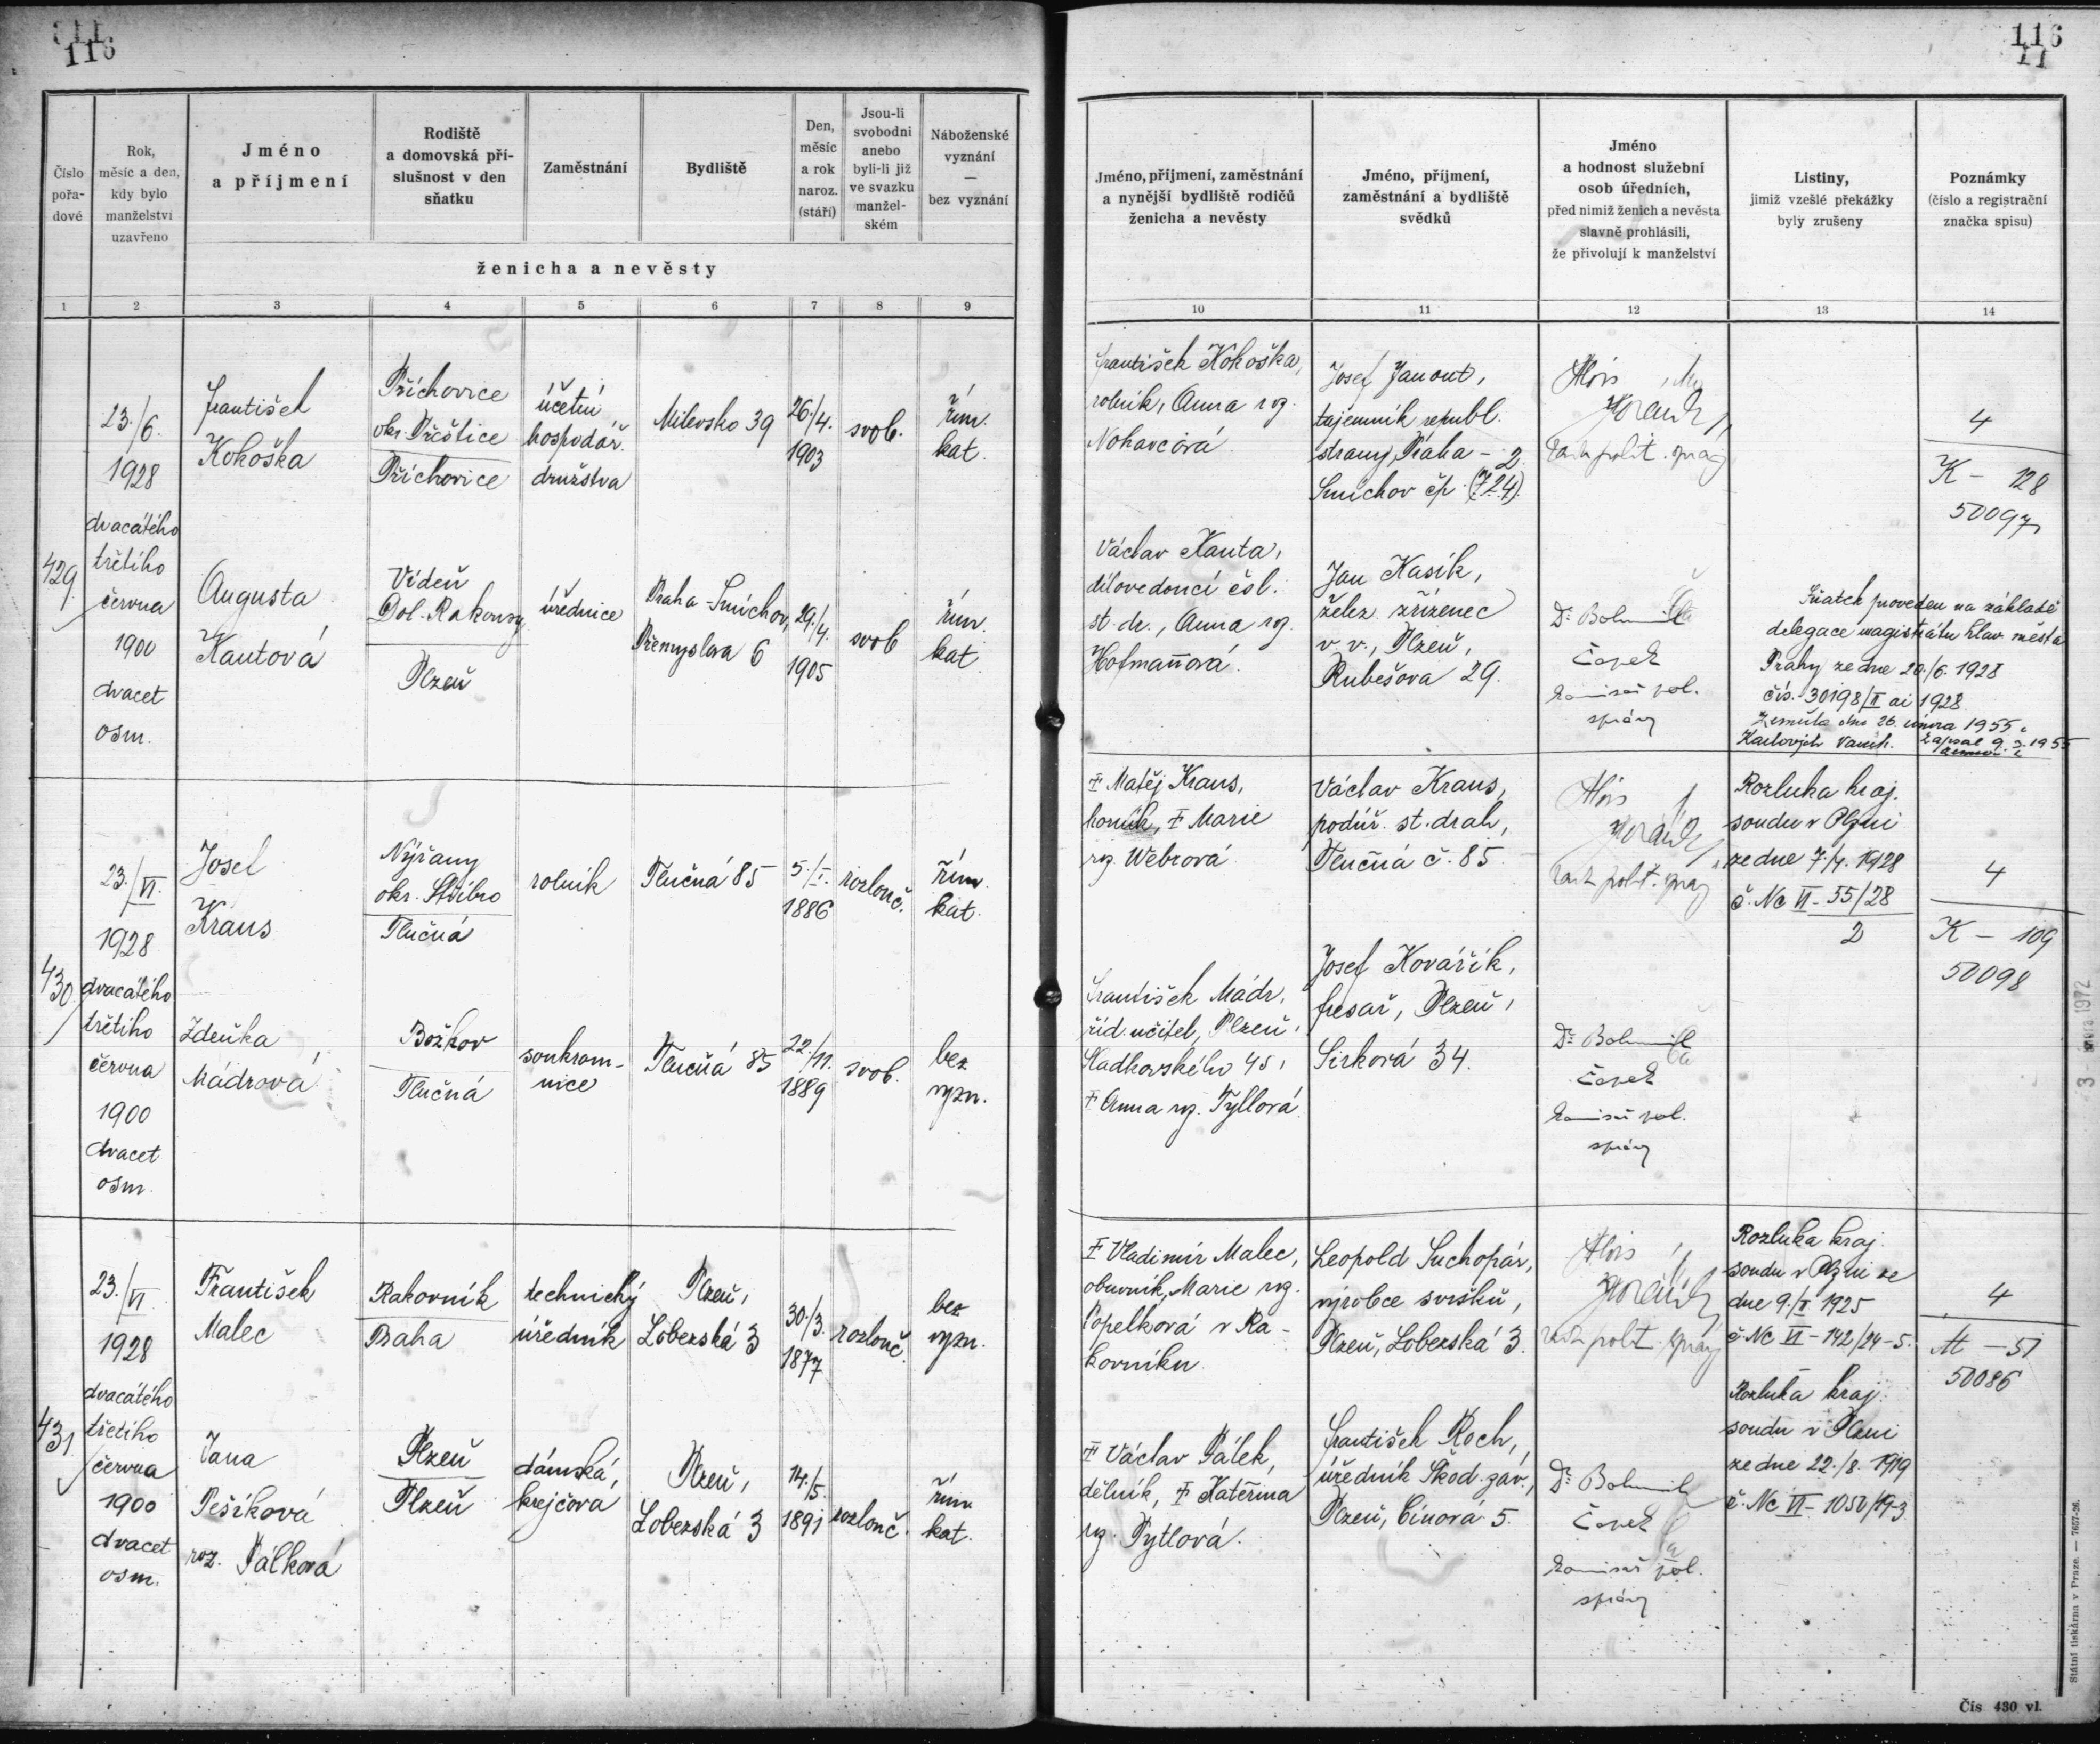 116
116
Číslo pořa- dové
Rok, měsíc a den, kdy bylo manželství uzavřeno
Jméno a příjmení
Rodiště a domovská pří- slušnost v den sňatku
Zaměstnání
Bydliště
Den, měsíc a rok naroz. (stáří)
Jsou-li svobodni anebo byli-li již ve svazku manžel- ském
Náboženské vyznání — bez vyznání
ženicha a nevěsty
Jméno, příjmení, zaměstnání a nynější bydliště rodičů ženicha a nevěsty
Jméno, příjmení, zaměstnání a bydliště svědků
Jméno a hodnost služební osob úředních, před nimiž ženich a nevěsta slavně prohlásili, že přivolují k manželství
Listiny, jimiž vzešlé překážky byly zrušeny
Poznámky (číslo a registrační značka spisu)
1 2 3 4 5 6 7 8 9 10 11 12 13 14
429
23./6.
1928
dvacátého
třetího
června
1900
dvacet
osm.
František
Kokoška
Příchovice
okr. Přeštice
Příchovice
účetní
hospodář.
družstva
Milevsko 39
26./4.
1903
svob.
řím.
kat.
František Kokoška,
rolník, Anna roz.
Nohavcová
Josef Janout,
tajemník republ.
strany, Praha - 2
Smíchov čp. (724).
Alois
polit. správy
4
K - 128
50097
Augusta
Kautová
Vídeň
Dol. Rakousy
Plzeň
úřednice
Praha-Smíchov,
Přemyslova 6
29./4.
1905
svob
řím.
kat.
Václav Kauta,
dílovedoucí čsl.
st. dr., Anna roz.
Hofmanová.
Jan Kasík,
želez. zřízenec
v. v., Plzeň,
Rubešova 29.
Dr. Bohumil
Čapek
komisař pol.
správy
Sňatek proveden na základě
delegace magistrátu hlav. města
Prahy ze dne 20./6. 1928
čís. 30198/II ai 1928.
Zemřela dne 26. února 1955 v
Karlových Varech. Zapsal 9.3.1955
430
23./VI.
1928
dvacátého
třetího
června
1900
dvacet
osm.
Josef
Kraus
Nýřany
okr. Stříbro
Tlučná
rolník
Tlučná 85
5./I.
1886
rozlouč.
řím.
kat.
† Matěj Kraus,
horník, † Marie
roz. Webrová
Václav Kraus,
podúř. st. drah,
Tlučná č. 85.
Alois
polit. správy
Rozluka kraj.
soudu v Plzni
ze dne 7./4. 1928
č. Nc VI - 55/28
2
4
K - 109
50098
Zdeňka
Mádrová
Božkov
Tlučná
soukrom-
nice
Tlučná 85
22./11.
1889
svob.
bez
vyzn.
František Mádr,
říd. učitel, Plzeň,
Nadhorského 45,
† Anna roz. Tyllová.
Josef Kovářík,
fresař, Plzeň,
Sirková 34.
Dr. Bohumil
Čapek
komisař pol.
správy
431
23./VI.
1928
dvacátého
třetího
června
1900
dvacet
osm.
František
Malec
Rakovník
Praha
technický
úředník
Plzeň,
Lobezská 3
30./3.
1877
rozlouč.
bez
vyzn.
† Vladimír Malec,
obuvník, Marie roz.
Popelková v Ra-
kovníku
Leopold Suchopár,
výrobce svršků,
Plzeň, Lobezská 3.
Alois
polit. správy
Rozluka kraj.
soudu v Plzni ze
dne 9./I. 1925
č. Nc VI - 142/24-5.
4
M - 51
50086
Jana
Pešíková
roz. Pálková
Plzeň
Plzeň
dámská
krejčová
Plzeň,
Lobezská 3
14./5.
1891
rozlouč.
řím.
kat.
† Václav Pálek,
dělník, † Kateřina
roz. Pytlová.
František Roch,
úředník Škod. záv.,
Plzeň, Cínová 5.
Dr. Bohumil
Čapek
komisař pol.
správy
Rozluka kraj.
soudu v Plzni
ze dne 22./8. 1919
č. Nc VI - 1050/19-3
3 - 1972
Státní tiskárna v Praze. — 7657-26.
Čís 430 vl.